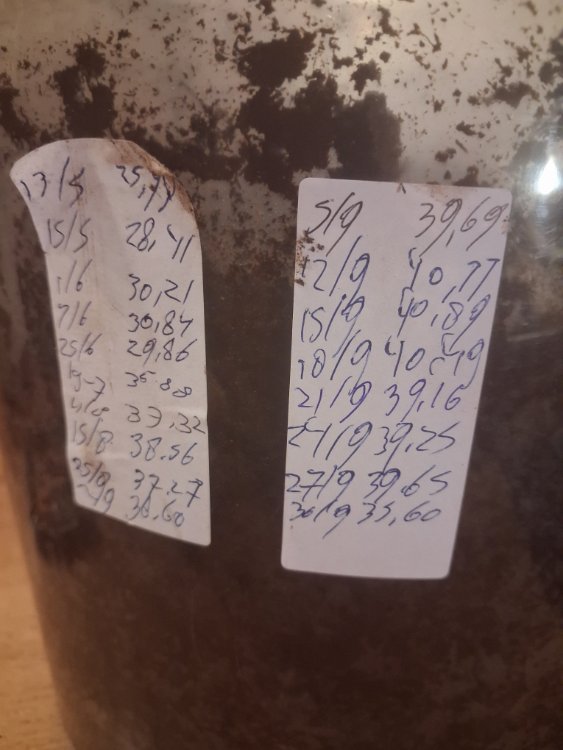 13/5 25,44
15/5 28,41
1/6 30,21
7/6 30,84
25/6 29,86
19-7
33,32
15/8 38.56
25/8 37.27
38.60
5/9 39,69
12/9 40,77
15/9 40,89
18/9 40,49
21/9 39,16
24/9 39,25
27/9 39.65
30/9 35,60